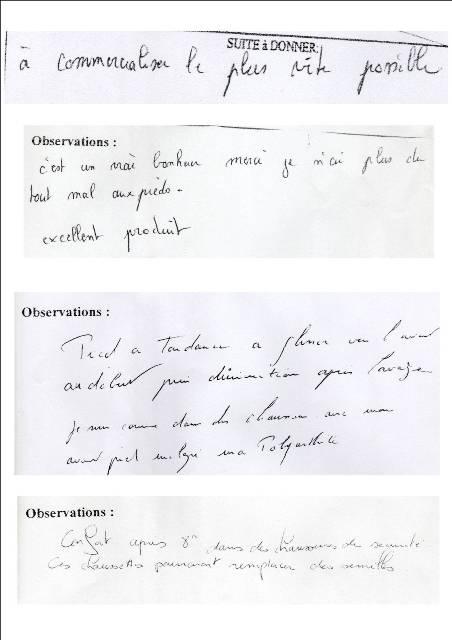 SUITE à DONNER:
à commercialiser le plus vite possible
Observations :
c'est un vrai bonheur merci je n'ai plus du
tout mal aux pieds.
excellent produit
Observations :
Pied a Tendance a glisser vers l'avant
au début puis diminution apres lavage
je suis comme dans des chaussons avec mon
avant pied malgré ma Polyarthrite
Observations :
Confort apres 8h dans des chaussures de securité
Ces chaussettes pourraient remplacer des semelles.